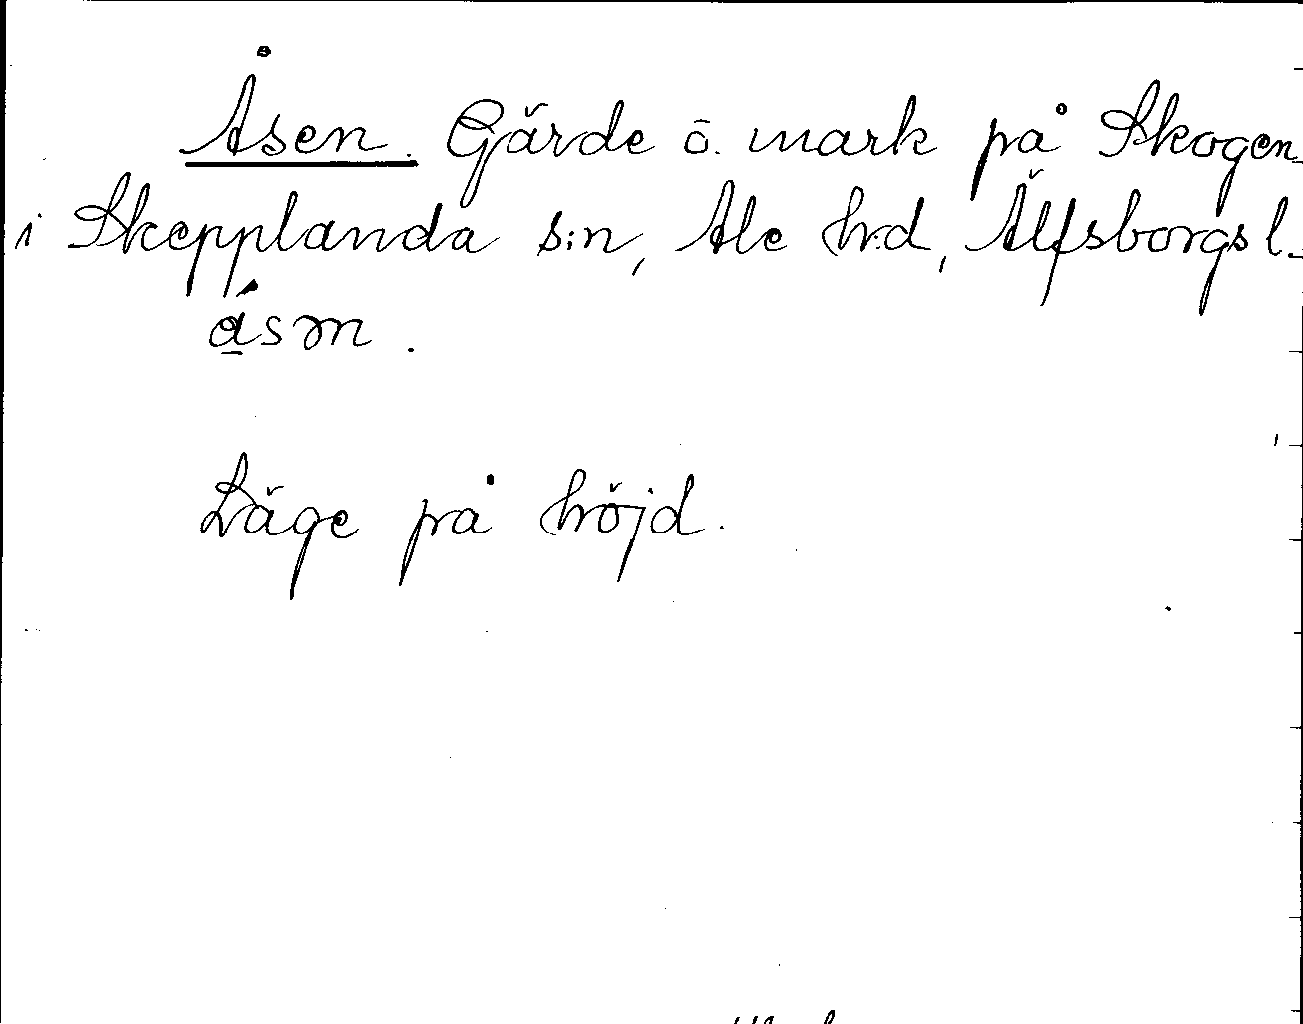 Åsen. Gärde ō. mark på Skogen
i Skepplanda s:n, Ale h:d, Älfsborgs l.
Läge på höjd.